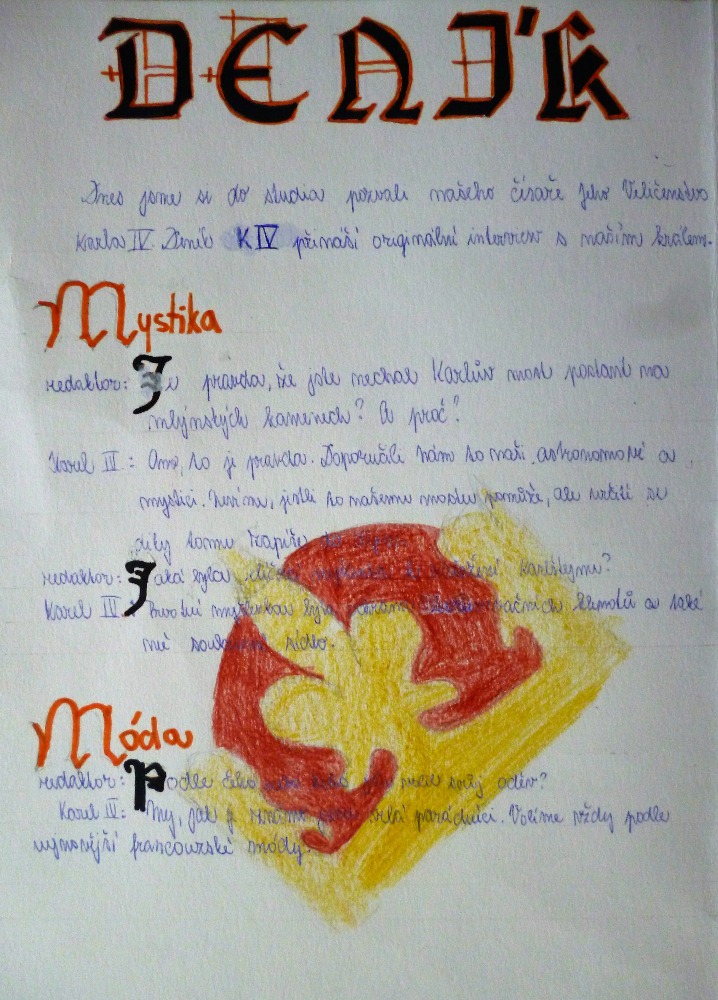 DENÍK
Dnes jsme si do studia pozvali našeho císaře Jeho Veličenstvo
Karla IV. Deník KIV přináší originální interview s naším králem.
Mystika
redaktor: Je pravda, že jste nechal Karlův most postavit na
mlýnských kamenech? A proč?
Karel IV: Ano, to je pravda. Doporučili nám to naši astronomové a
mystici. Nevíme, jestli to našemu mostu pomůže, ale určitě se
díky tomu zapíše do
redaktor: Jaká byla Karlštejnu?
Karel IV: Prvotní myšlenka byla korunovačních klenotů a také
mé soukromé sídlo.
Móda
redaktor: Podle svůj oděv?
Karel IV: My, jak je známo parádníci. Volíme vždy podle
nejnovější francouzské módy.